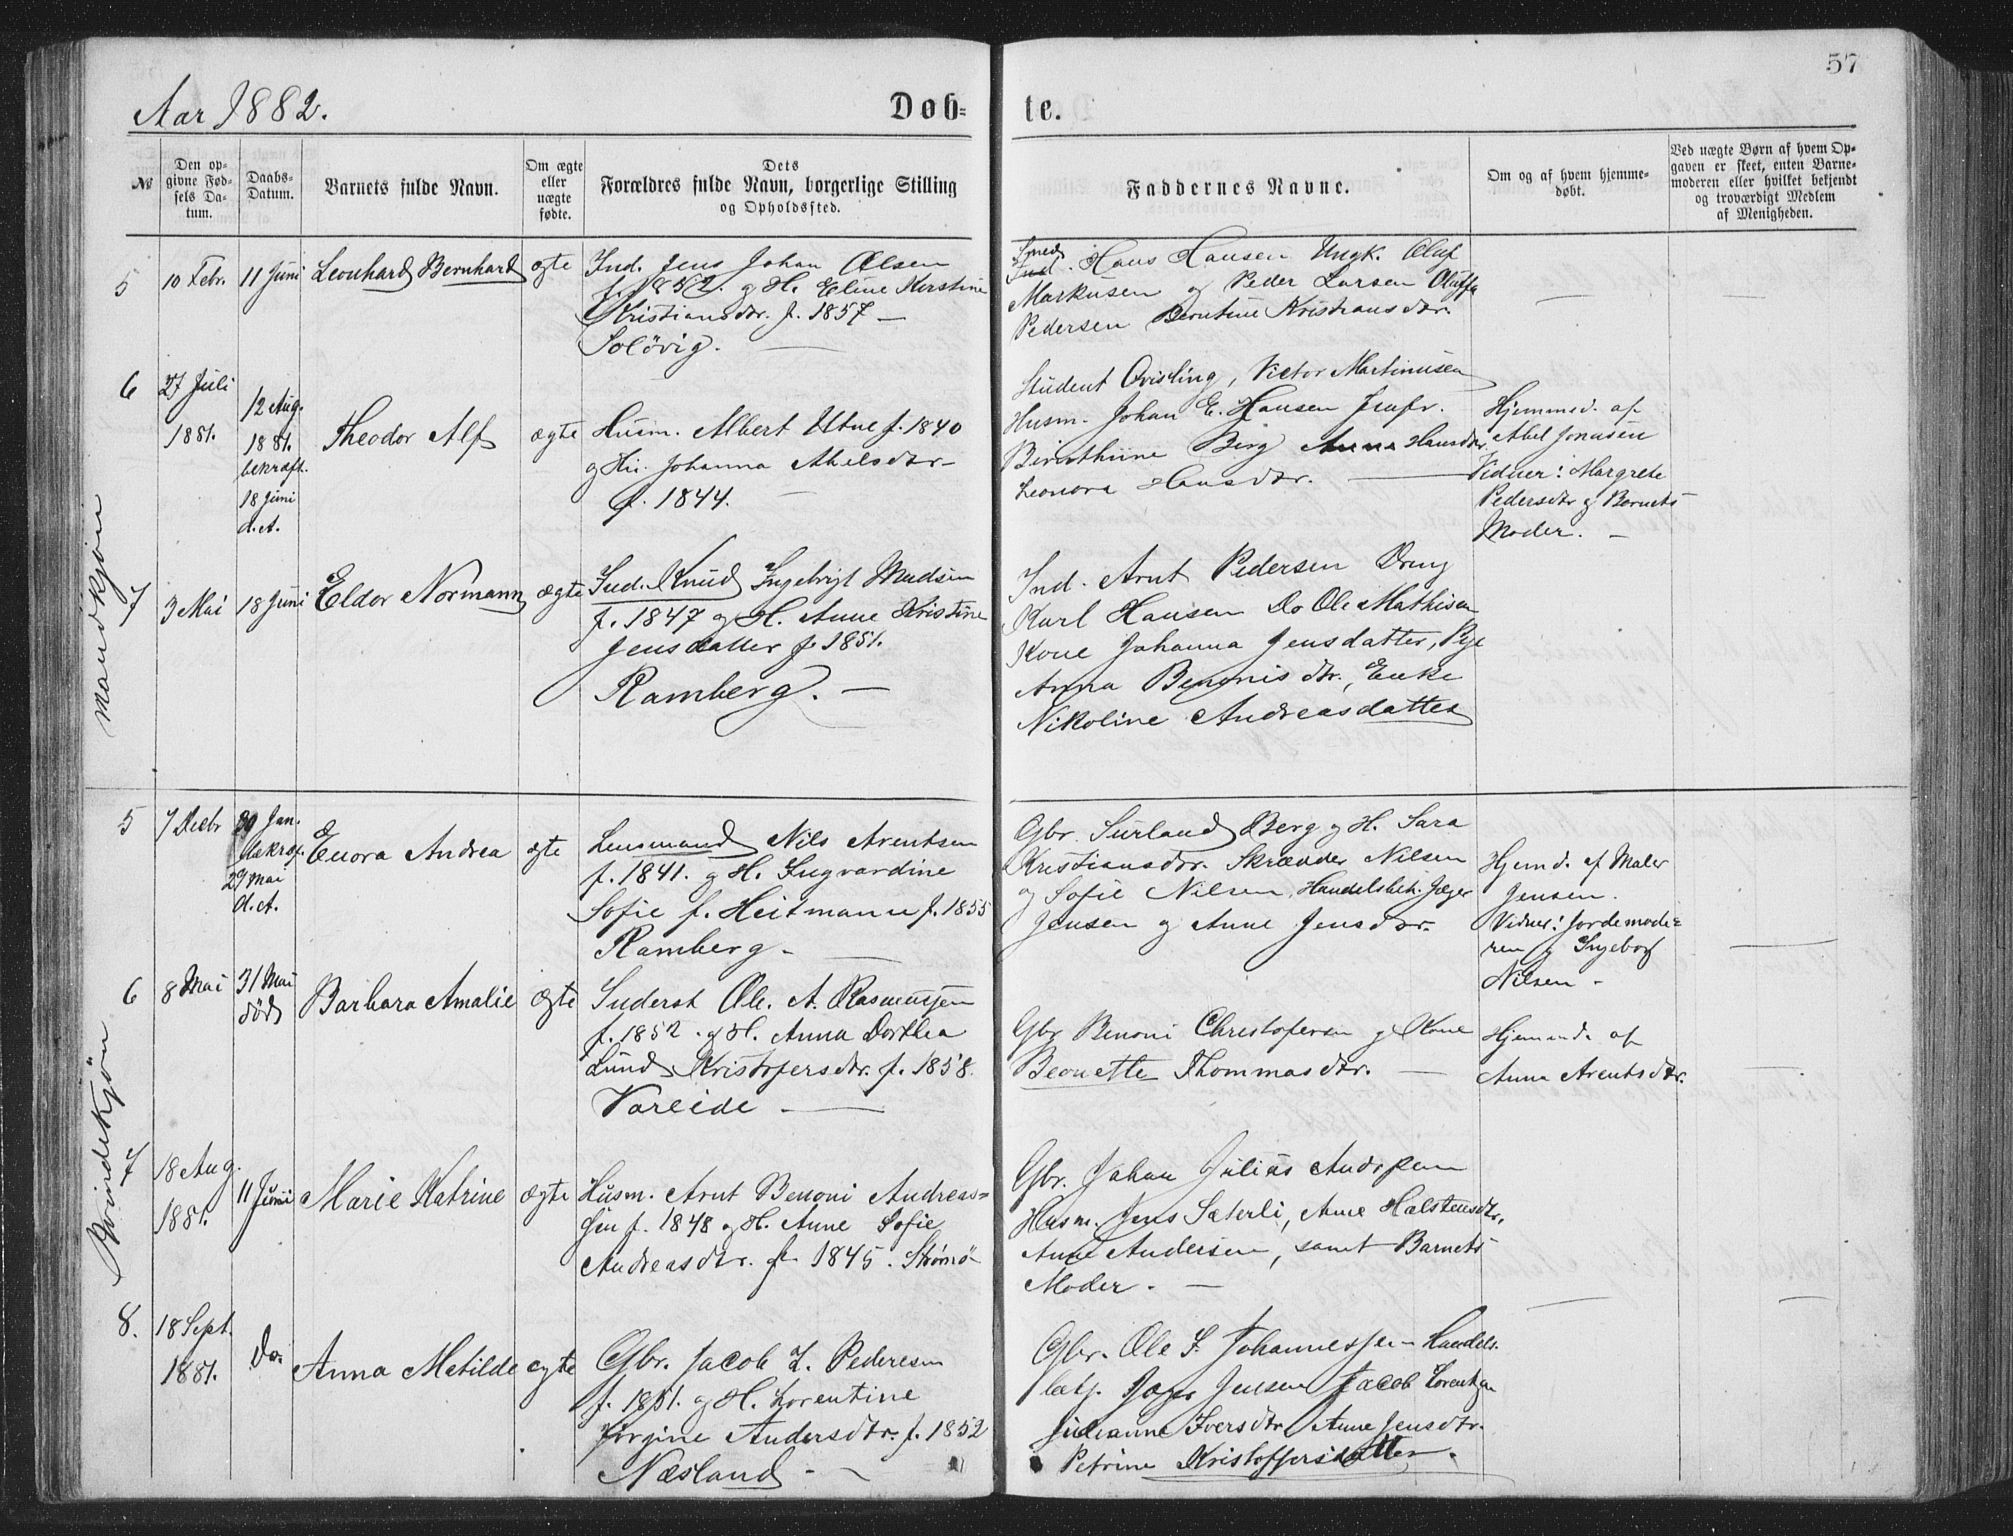 57
Aar 1882.
Døb-
te.
№
Den op-
givne Fød-
sels Da-
tum.
Daabs-
Datum.
Barnets fulde Navn.
Om ægte
eller
uægte
fødte.
Dets
Forældres fulde Navn, borgerlige Stilling
og Opholdssted.
Faddernes Navne.
Om og af hvem hjemme-
døbt.
Ved uægte Børn af hvem Op-
gaven er skeet, enten Barne-
moderen eller hvilket bekjendt
og troværdigt Medlem
af Menigheden.
Mandkjøn
5
10 Febr.
11 Juni
Leonhard Bernhard
ægte
Ind. Jens Johan Olsen
f. 1852 . g H. Eline Kirstine
Kristiansdtr. f. 1857 —
Soløvig. —
Smed
Ind. Hans Hansen Ungk. Oluf
Markusen og Peder Larsen Oluffa
Pedersen Berntine Kristiansdtr.
—
6
27 Juli
1881.
12 Aug.
1881.
bekræft.
18 Juni
d.A.
Theodor Alf
ægte
Husm. Albert Utne f. 1840
g Hu. Johanna Abelsdtr.
f. 1844. —
Student Qvisling, Victor Martinusen
Husm. Johan E. Hansen Jmfr.
Birnthine Berg Anna Hansdtr
Leonora Hansdtr. —
Hjemmed. af
Abel Jonasen
Vidner: Margrete
Pedersdtr g Barnets
Moder. —
7
3 Mai
18 Juni
Eldor Normann
ægte
Ind. Knud Ingebrigt Madsen
f. 1847 g H. Anne Kristine
Jensdatter f 1851.
Ramberg. —
Ind. Arnt Pedersen Dreng
Karl Hansen Do Ole Mathisen
Kone Johanna Jensdatter, Pige
Anna Benonisdtr., Enke
Nikoline Andreasdatter
Kvindekjøn
5
7 Decbr
29 Jan.
bekræf.
29 Mai
d.A.
Enora Andrea
ægte
Lensmand Nils Arentsen
f. 1841. g H. Ingvardine
Sofie f. Heitmann f. 1855
Ramberg —
Gbr. Surland Berg g H. Sara
Kristiansdtr. Skrædder Nilsen
g Sofie Nilsen, Handelsbet. Jæger
Jensen g Anne Jensdtr.
Hjemd. af Maler
Jensen.
Vidner: Jordemode-
ren g Ingeborg
Nilsen —
6
8 Mai
31 Mai
død
Barbara Amalie
ægte
Inderst Ole A. Rasmussen
f. 1852 . g H. Anna Dorthea
Lund Kristofersdtr. f. 1858.
Vareide —
Gbr Benoni Christofersen g Kone
Beonette Thommasdtr. —
Hjemmd. af
Anne Arentsdtr.
7
18 Aug.
1881.
11 Juni
Marie Katrine
ægte
Husm. Arnt Benoni Andreas-
sen f. 1848 g H. Anne Sofie
Andreasdtr. f. 1845. Strømø
Gbr. Johan Julius Andersen
Husm. Jens Sæterli, Anne Halstensdtr.
Anne Andersen, samt Barnets
Moder. —
8.
18 Sept.
1881.
Do.
Anna Metilde
ægte
Gbr. Jacob L. Pedersen
f. 1851. g H. Lorentine
Jørgine Andersdtr. f. 1852
Næsland —
Gbr. Ole S. Johannessen Handels-
betj. Jæger Jensen Jacob Lorentzen
Julianne Iversdtr Anne Jensdtr.
Petrine Kristoffersdatter.